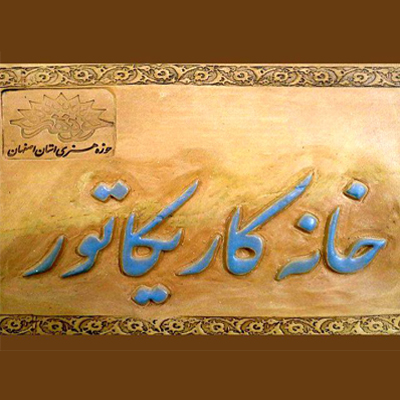 حوزه هنری استان اصفهان
خانه کاریکاتور